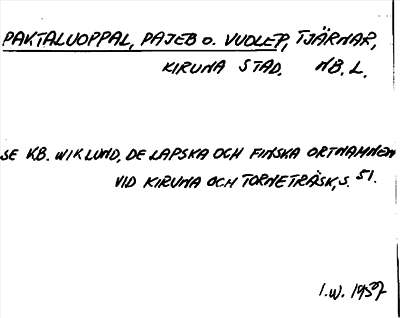 PAKTALUOPPAL, PAJEB O. VUOLEP, TJÄRNAR,
KIRUNA STAD. NB. L.
SE KB. WIKLUND, DE LAPSKA OCH FINSKA ORTNAMNEN
VID KIRUNA OCH TORNETRÄSK, S. 51.
I.W. 1957